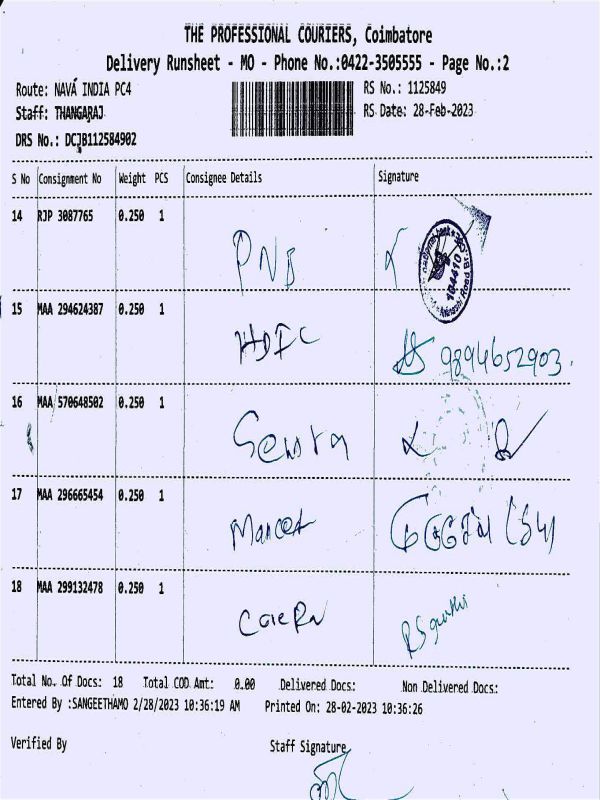 THE PROFESSIONAL COURIERS, Coimbatore
Delivery Runsheet - MO - Phone No.:0422-3505555 - Page No.:2
Route: NAVA INDIA PC4 RS No.: 1125849
Staff: THANGARAJ RS Date: 28-Feb-2023
DRS No.: DCJB112584902
S No Consignment No Weight PCS Consignee Details Signature
14 RJP 3087765 0.250 1 PNB
104410
15 MAA 294624387 0.250 1 HDFC 9894652903.
16 MAA 570648502 0.250 1
17 MAA 296665454 0.250 1
18 MAA 299132478 0.250 1
Total No. Of Docs: 18 Total COD Amt: 0.00 Delivered Docs: Non Delivered Docs:
Entered By :SANGEETHAMO 2/28/2023 10:36:19 AM Printed On: 28-02-2023 10:36:26
Verified By Staff Signature